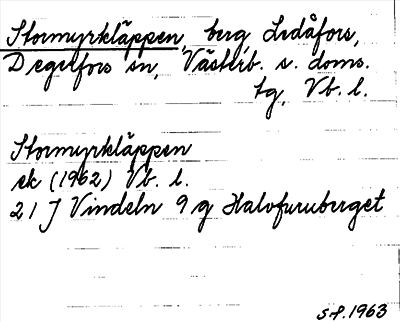 Stormyrkläppen, berg, Lidåfors,
Degerfors sn, Västerb. s. doms.
tg, Vb. l.
Stormyrkläppen
ek (1962) Vb. l.
21 J Vindeln 9 g Halvfuruberget
S.P. 1963